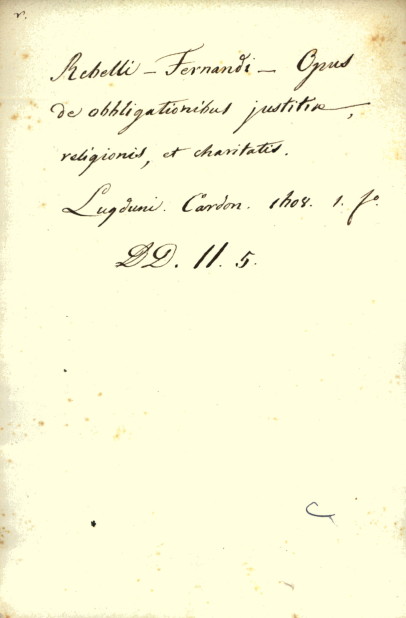 r.
Rebelli - Fernandi - Opus
de obbligationibus justitiæ,
religionis, et charitatis.
Lugduni. Cardon. 1608. 1. fo.
DD. 11. 5.
C